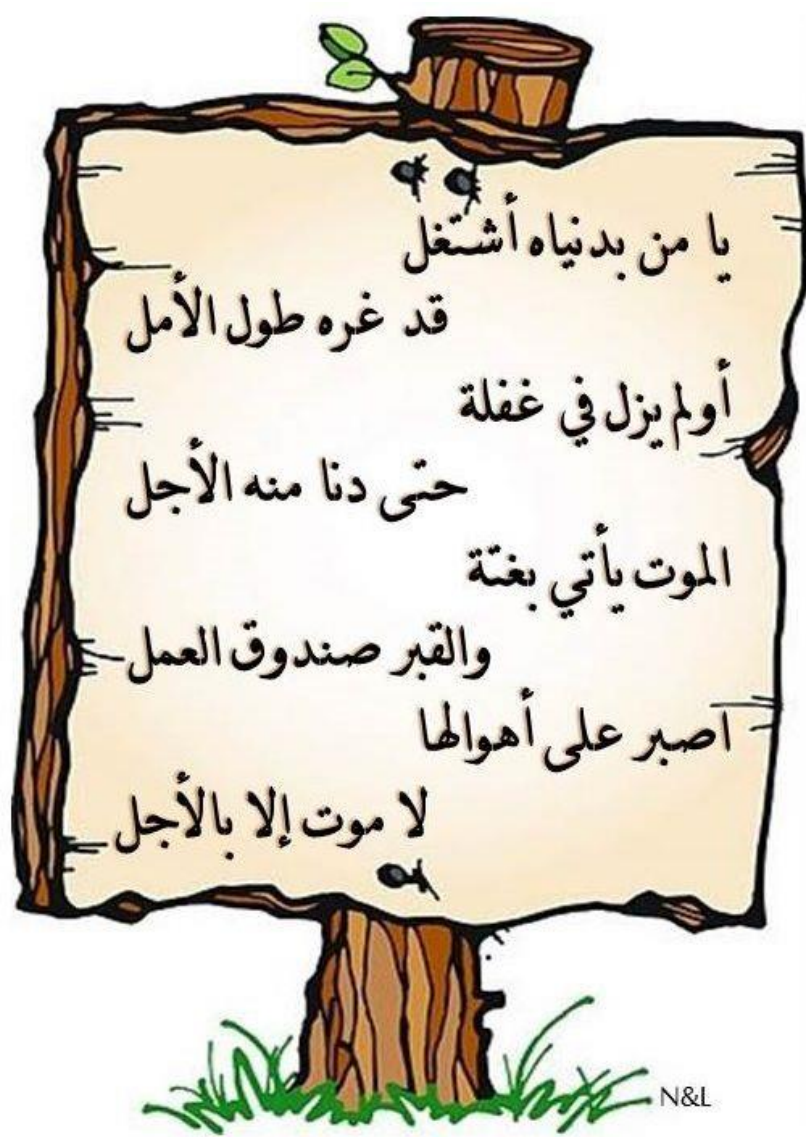 يا من بدنياه أشتغل
قد غره طول الأمل
أولم يزل في غفلة
حتى دنا منه الأجل
الموت يأتي بغتة
والقبر صندوق العمل
اصبر على أهوالها
لا موت إلا بالأجل
N&L